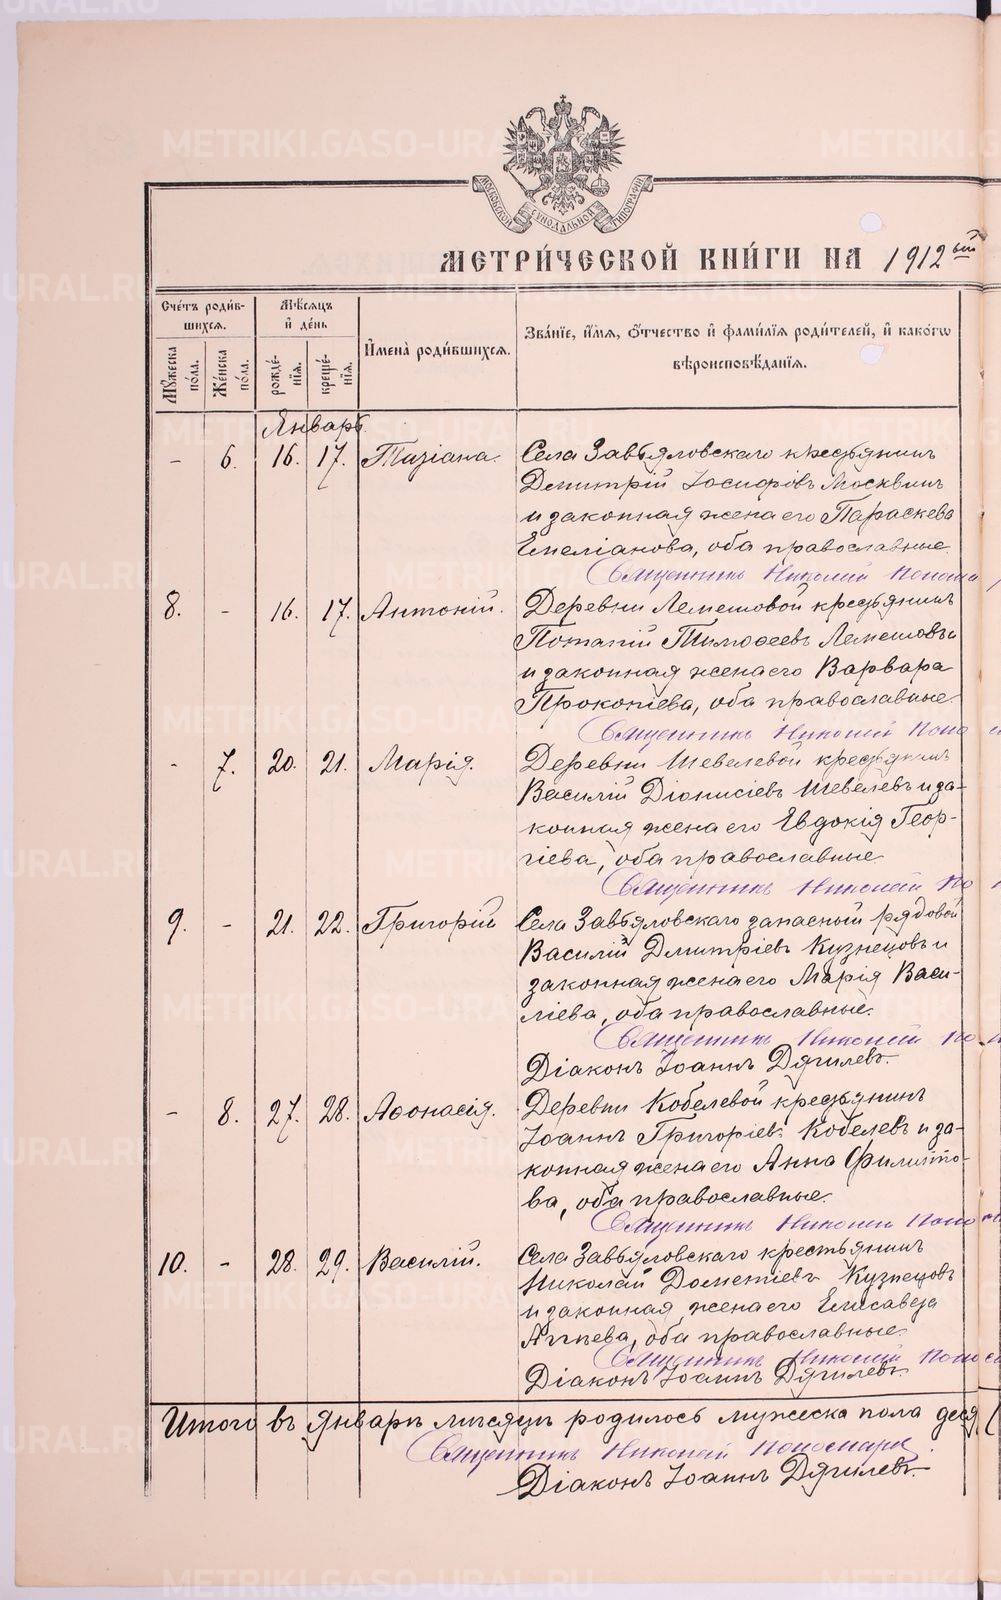 МОСКОВСКОЙ СѴНОДАЛЬНОЙ ТИПОГРАФІИ
МЕТРИ́ЧЕСКОЙ КНИ́ГИ НА 1912ый
Сче́тъ роди́в-
шихся.
Му́жеска по́ла.
Же́нска по́ла.
Мѣ́сяцъ
и҆ де́нь
рожде́нїя.
креще́нїя.
И҆мена̀ роди́вшихся.
Зва́нїе, и҆́мя, ѻ҆́тчество и҆ фами́лїя роди́телей, и҆ како́гѡ
вѣроисповѣ́данїя.
Январь.
- 6. 16. 17. Татіана. Села Завьяловскаго крестьянинъ
Димитрій Іосифовъ Москвинъ
и законная жена его Параскева
Емеліанова, оба православные.
Священникъ Николай
8. - 16. 17. Антоній. Деревни Лемешовой крестьянинъ
Потапій Тимофеевъ Лемешовъ и
и законная жена его Варвара
Прокопіева, оба православные.
Священникъ Николай Поно
- 7. 20. 21. Марія. Деревни Шевелевой крестьянинъ
Василій Діонисіевъ Шевелевъ и за-
конная жена его Евдокія Геор-
гіева, оба православные
Священникъ Николай По
9. - 21. 22. Григорій Села Завьяловскаго запасный рядовой
Василій Дмитріевъ Кузнецовъ и
законная жена его Марія Васи-
ліева, оба православные.
Священникъ Николай По
Діаконъ Іоаннъ Дягилевъ.
- 8. 27. 28. Афонасія. Деревни Кобелевой крестьянинъ
Іоаннъ Григоріевъ Кобелевъ и за-
конная жена его Анна Филиппо-
ва, оба православные.
Священникъ Николай Поно
10. - 28. 29. Василій. Села Завьяловскаго крестьянинъ
Николай Дометіевъ Кузнецовъ
и законная жена его Елисавета
оба православные.
Священникъ Николай Поно
Діаконъ Іоаннъ Дягилевъ
Итого въ Январѣ мѣсяцѣ родилось мужеска пола деся
Священникъ Николай Пономарев
Діаконъ Іоаннъ Дягилевъ.
METRIKI.GASO-URAL.RU